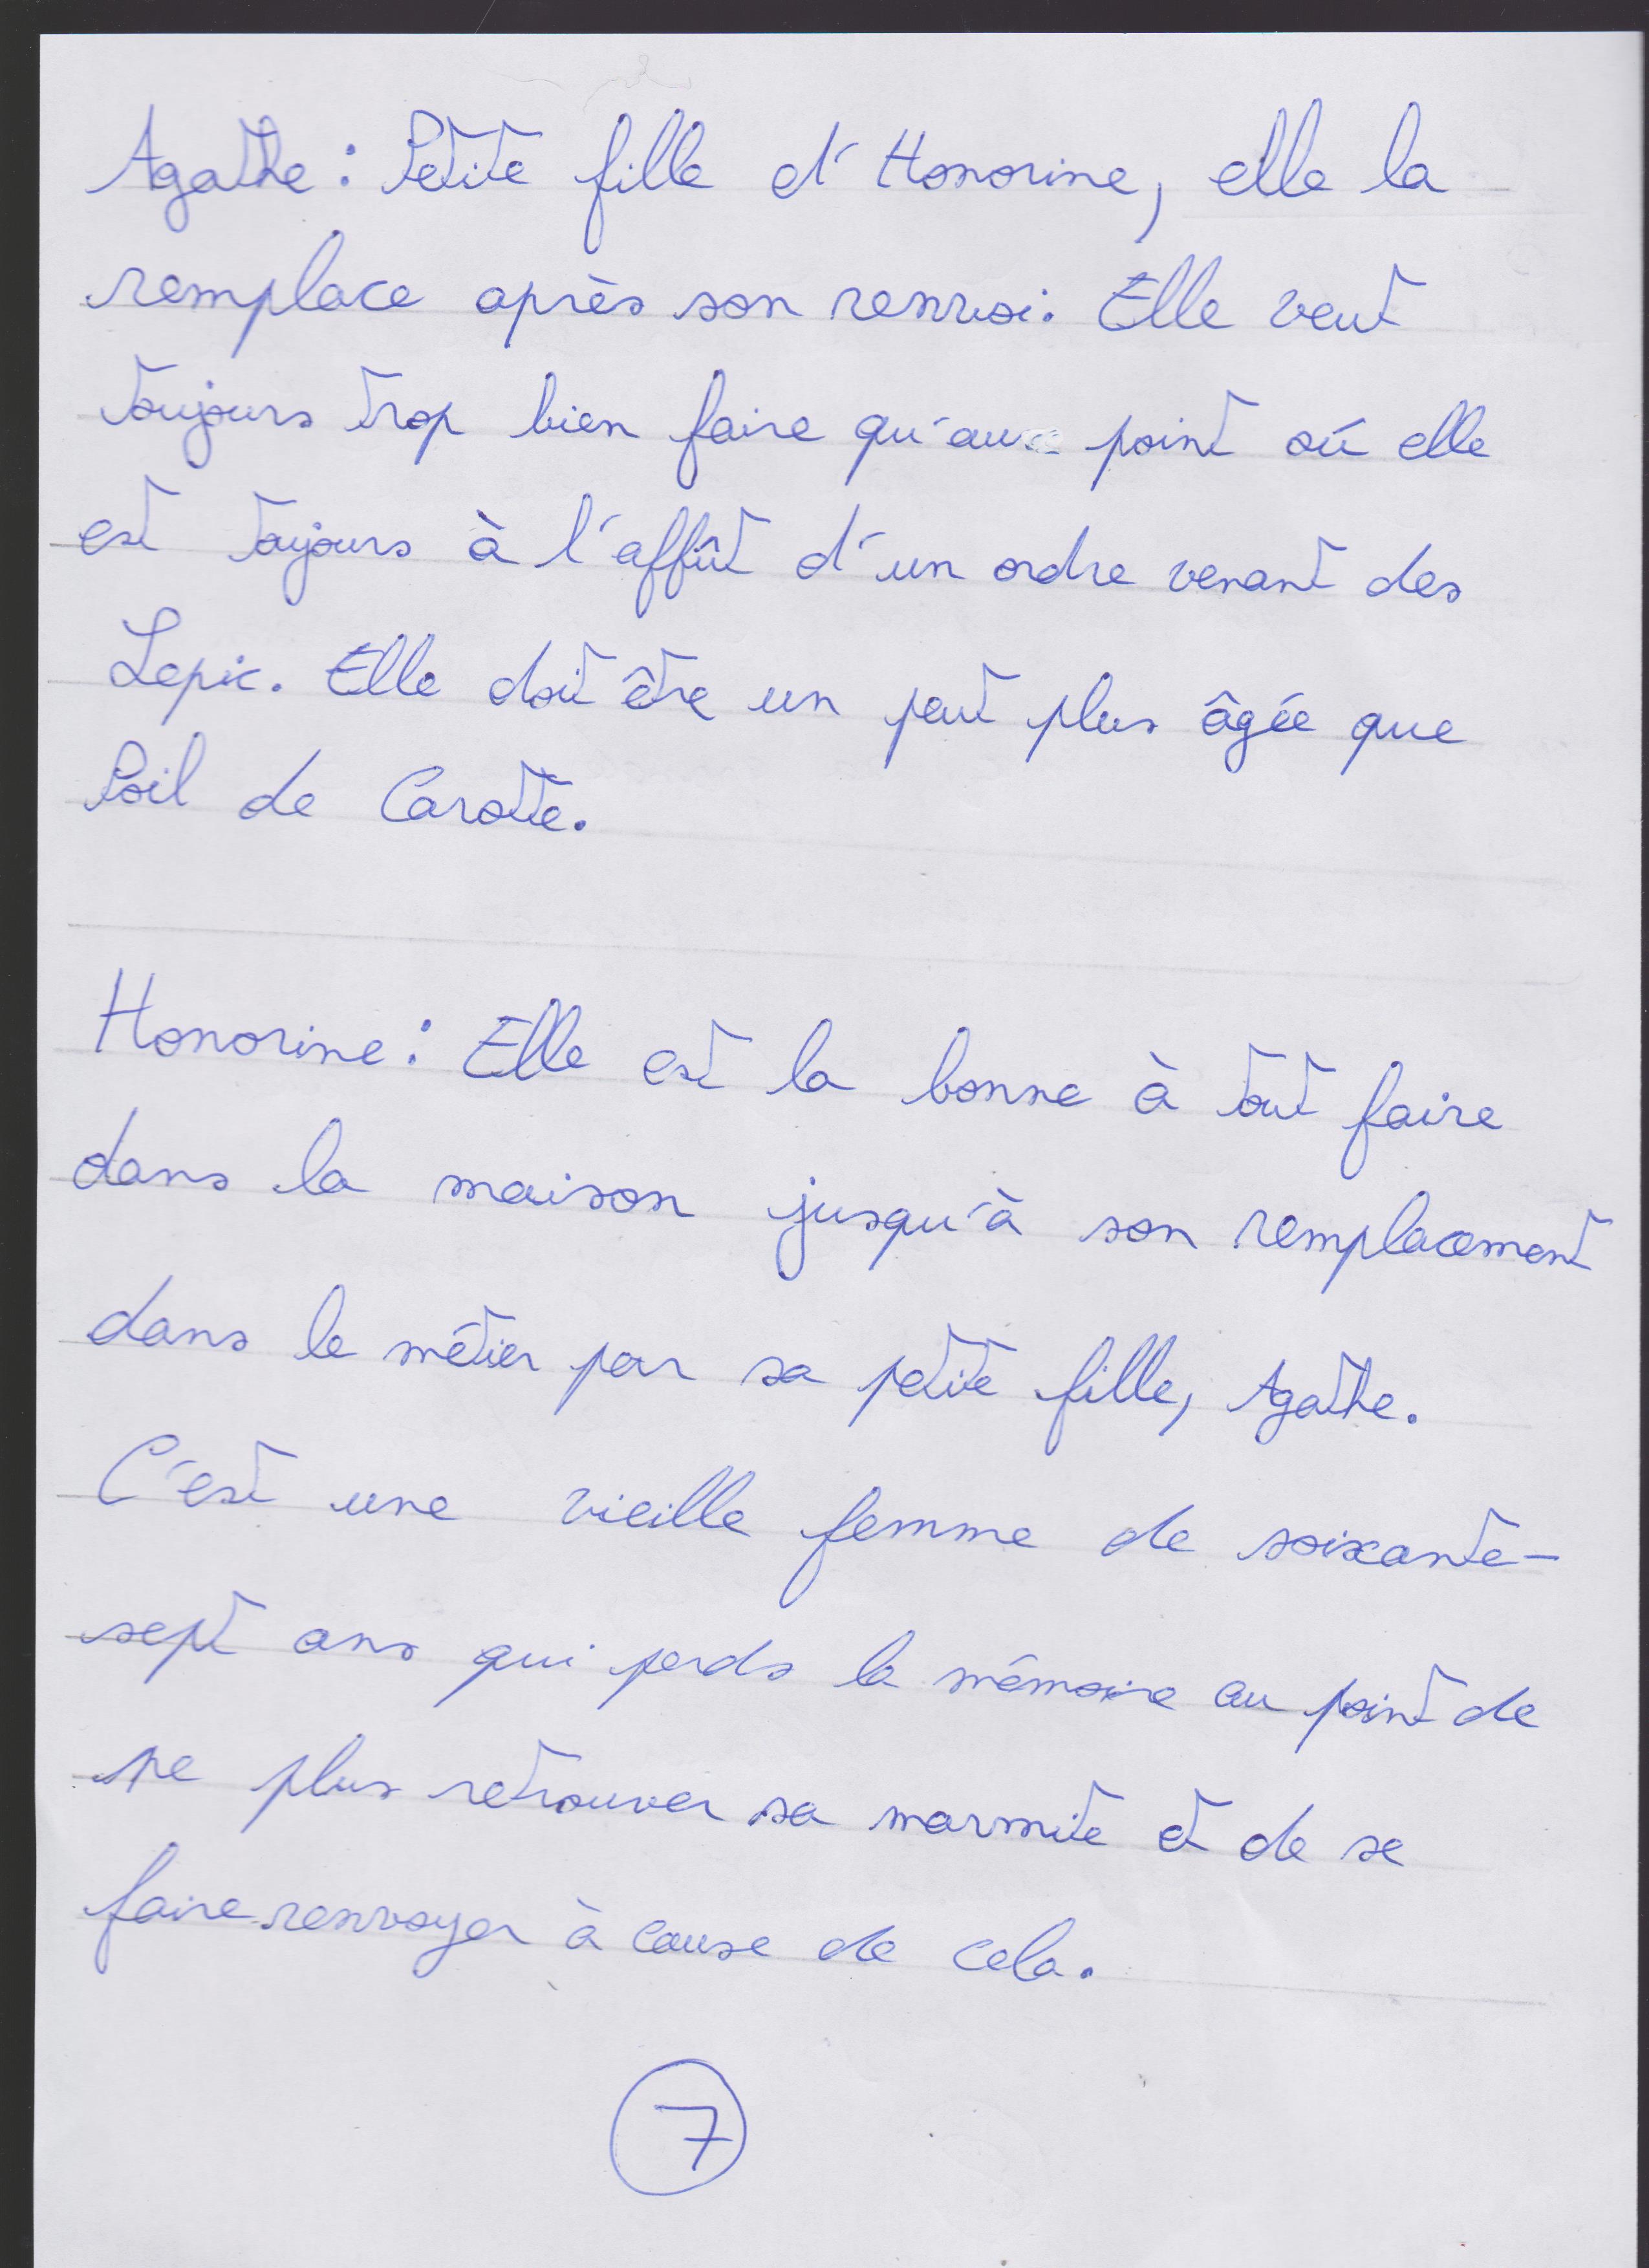 Agathe : Petite fille d'Honorine, elle la
remplace après son renvoi. Elle veut
toujours trop bien faire qu'au point où elle
est toujours à l'affût d'un ordre venant des
Lepic. Elle doit être un peut plus âgée que
Poil de Carotte.
Honorine : Elle est la bonne à tout faire
dans la maison jusqu'à son remplacement
dans le métier par sa petite fille, Agathe.
C'est une vieille femme de soixante-
sept ans qui perds la mémoire au point de
ne plus retrouver sa marmite et de se
faire renvoyer à cause de cela.
7